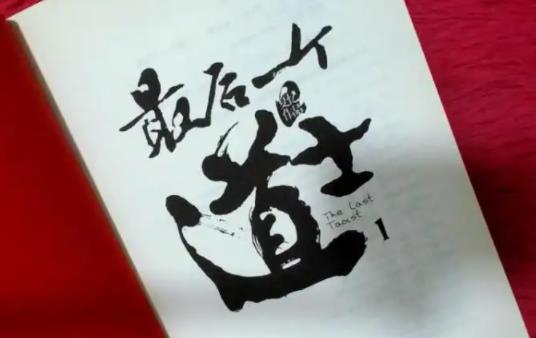 最后一个
道士
The Last
Taoist
1